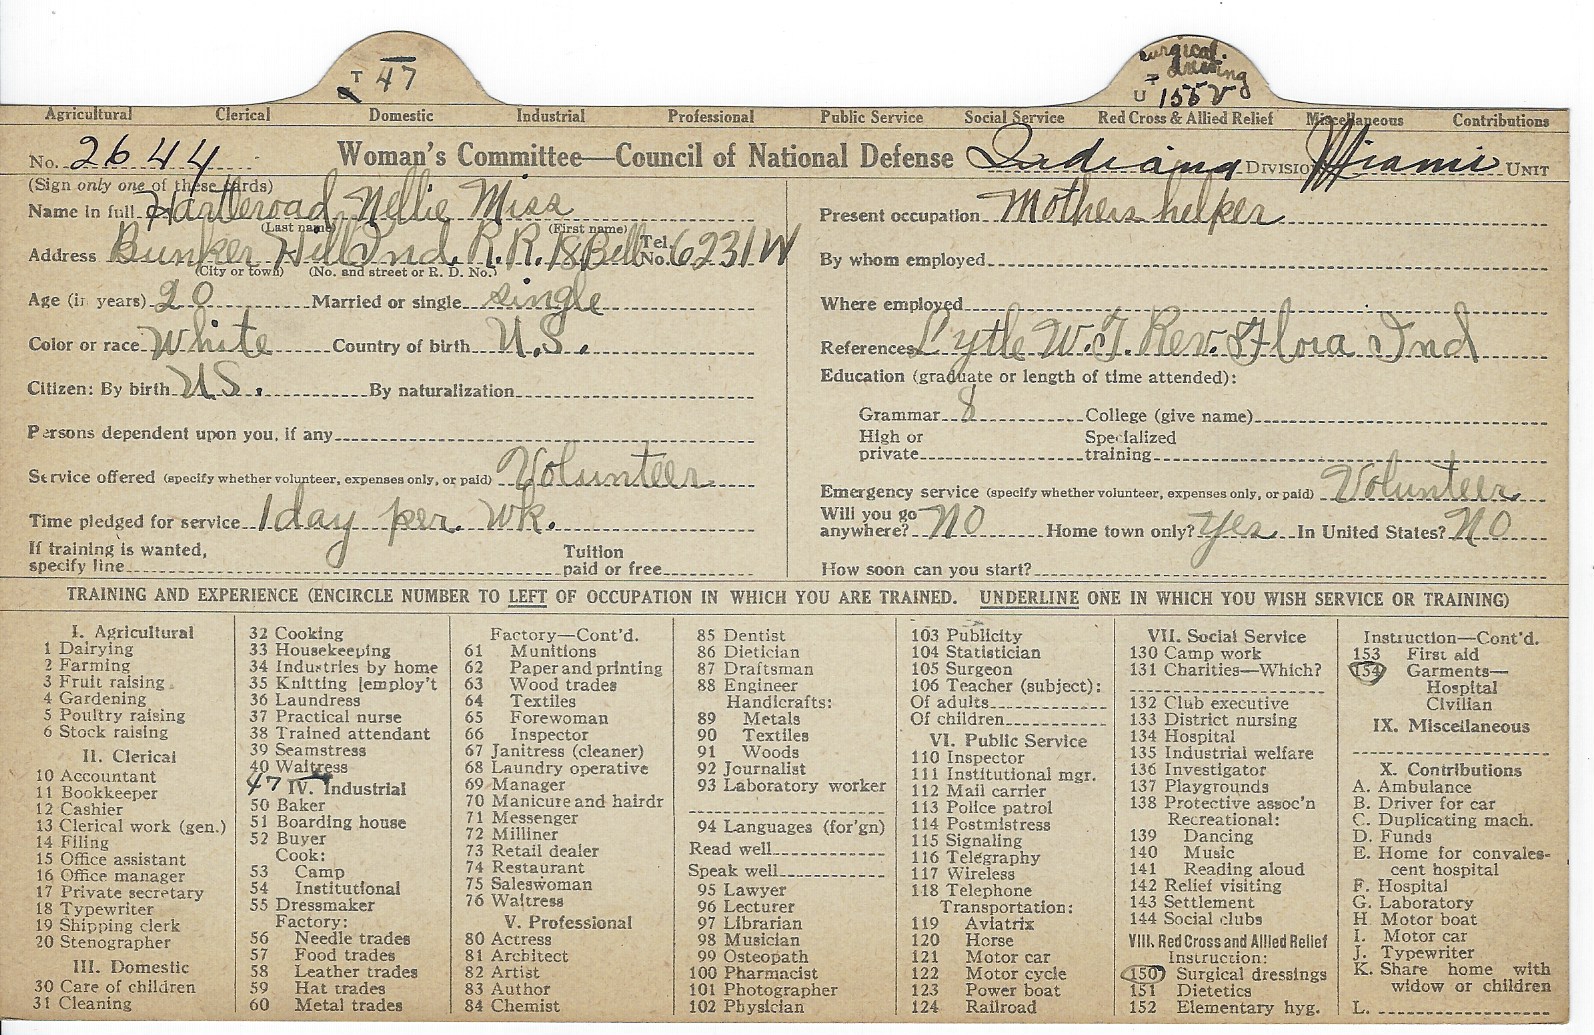 T 47
surgical
dressing
T
U 155 V
Agricultural Clerical Domestic Industrial Professional Public Service Social Service Red Cross & Allied Relief Miscellaneous Contributions
No. 2644 Woman's Committee—Council of National Defense Indiana DIVISION Miami UNIT
(Sign only one of these cards)
Name in full Hartleroad Nellie Miss
(Last name) (First name)
Address Bunker Hill Ind. R.R. 18 Bell Tel. No. 6231W
(City or town) (No. and street or R. D. No.)
Age (in years) 20 Married or single single
Color or race White Country of birth U.S.
Citizen: By birth U.S. By naturalization
Persons dependent upon you, if any
Service offered (specify whether volunteer, expenses only, or paid) Volunteer
Time pledged for service 1 day per. wk.
If training is wanted, specify line Tuition paid or free
Present occupation Mothers helper
By whom employed
Where employed
References Lytle W.T. Rev. Flora Ind
Education (graduate or length of time attended):
Grammar 8 College (give name)
High or private Specialized training
Emergency service (specify whether volunteer, expenses only, or paid) Volunteer
Will you go anywhere? No Home town only? Yes In United States? No
How soon can you start?
TRAINING AND EXPERIENCE (ENCIRCLE NUMBER TO LEFT OF OCCUPATION IN WHICH YOU ARE TRAINED. UNDERLINE ONE IN WHICH YOU WISH SERVICE OR TRAINING)
I. Agricultural
1 Dairying
2 Farming
3 Fruit raising
4 Gardening
5 Poultry raising
6 Stock raising
II. Clerical
10 Accountant
11 Bookkeeper
12 Cashier
13 Clerical work (gen.)
14 Filing
15 Office assistant
16 Office manager
17 Private secretary
18 Typewriter
19 Shipping clerk
20 Stenographer
III. Domestic
30 Care of children
31 Cleaning
32 Cooking
33 Housekeeping
34 Industries by home
35 Knitting [employ't
36 Laundress
37 Practical nurse
38 Trained attendant
39 Seamstress
40 Waitress
47 IV. Industrial
50 Baker
51 Boarding house
52 Buyer
Cook:
53 Camp
54 Institutional
55 Dressmaker
Factory:
56 Needle trades
57 Food trades
58 Leather trades
59 Hat trades
60 Metal trades
Factory—Cont'd.
61 Munitions
62 Paper and printing
63 Wood trades
64 Textiles
65 Forewoman
66 Inspector
67 Janitress (cleaner)
68 Laundry operative
69 Manager
70 Manicure and hairdr
71 Messenger
72 Milliner
73 Retail dealer
74 Restaurant
75 Saleswoman
76 Waitress
V. Professional
80 Actress
81 Architect
82 Artist
83 Author
84 Chemist
85 Dentist
86 Dietician
87 Draftsman
88 Engineer
Handicrafts:
89 Metals
90 Textiles
91 Woods
92 Journalist
93 Laboratory worker
94 Languages (for'gn)
Read well
Speak well
95 Lawyer
96 Lecturer
97 Librarian
98 Musician
99 Osteopath
100 Pharmacist
101 Photographer
102 Physician
103 Publicity
104 Statistician
105 Surgeon
106 Teacher (subject):
Of adults
Of children
VI. Public Service
110 Inspector
111 Institutional mgr.
112 Mail carrier
113 Police patrol
114 Postmistress
115 Signaling
116 Telegraphy
117 Wireless
118 Telephone
Transportation:
119 Aviatrix
120 Horse
121 Motor car
122 Motor cycle
123 Power boat
124 Railroad
VII. Social Service
130 Camp work
131 Charities—Which?
132 Club executive
133 District nursing
134 Hospital
135 Industrial welfare
136 Investigator
137 Playgrounds
138 Protective assoc'n
Recreational:
139 Dancing
140 Music
141 Reading aloud
142 Relief visiting
143 Settlement
144 Social clubs
VIII. Red Cross and Allied Relief
Instruction:
150 Surgical dressings
151 Dietetics
152 Elementary hyg.
Instruction—Cont'd.
153 First aid
154 Garments—
Hospital
Civilian
IX. Miscellaneous
X. Contributions
A. Ambulance
B. Driver for car
C. Duplicating mach.
D. Funds
E. Home for convales-
cent hospital
F. Hospital
G. Laboratory
H Motor boat
I. Motor car
J. Typewriter
K. Share home with
widow or children
L.